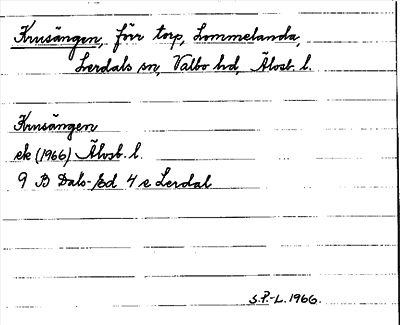 Krusängen, förr torp, Lommelanda,
Lerdals sn, Valbo hd, Älvsb. l.
Krusängen
ek (1966) Älvsb. l.
9 B Dals-Ed 4 e Lerdal
S.P.-L. 1966.